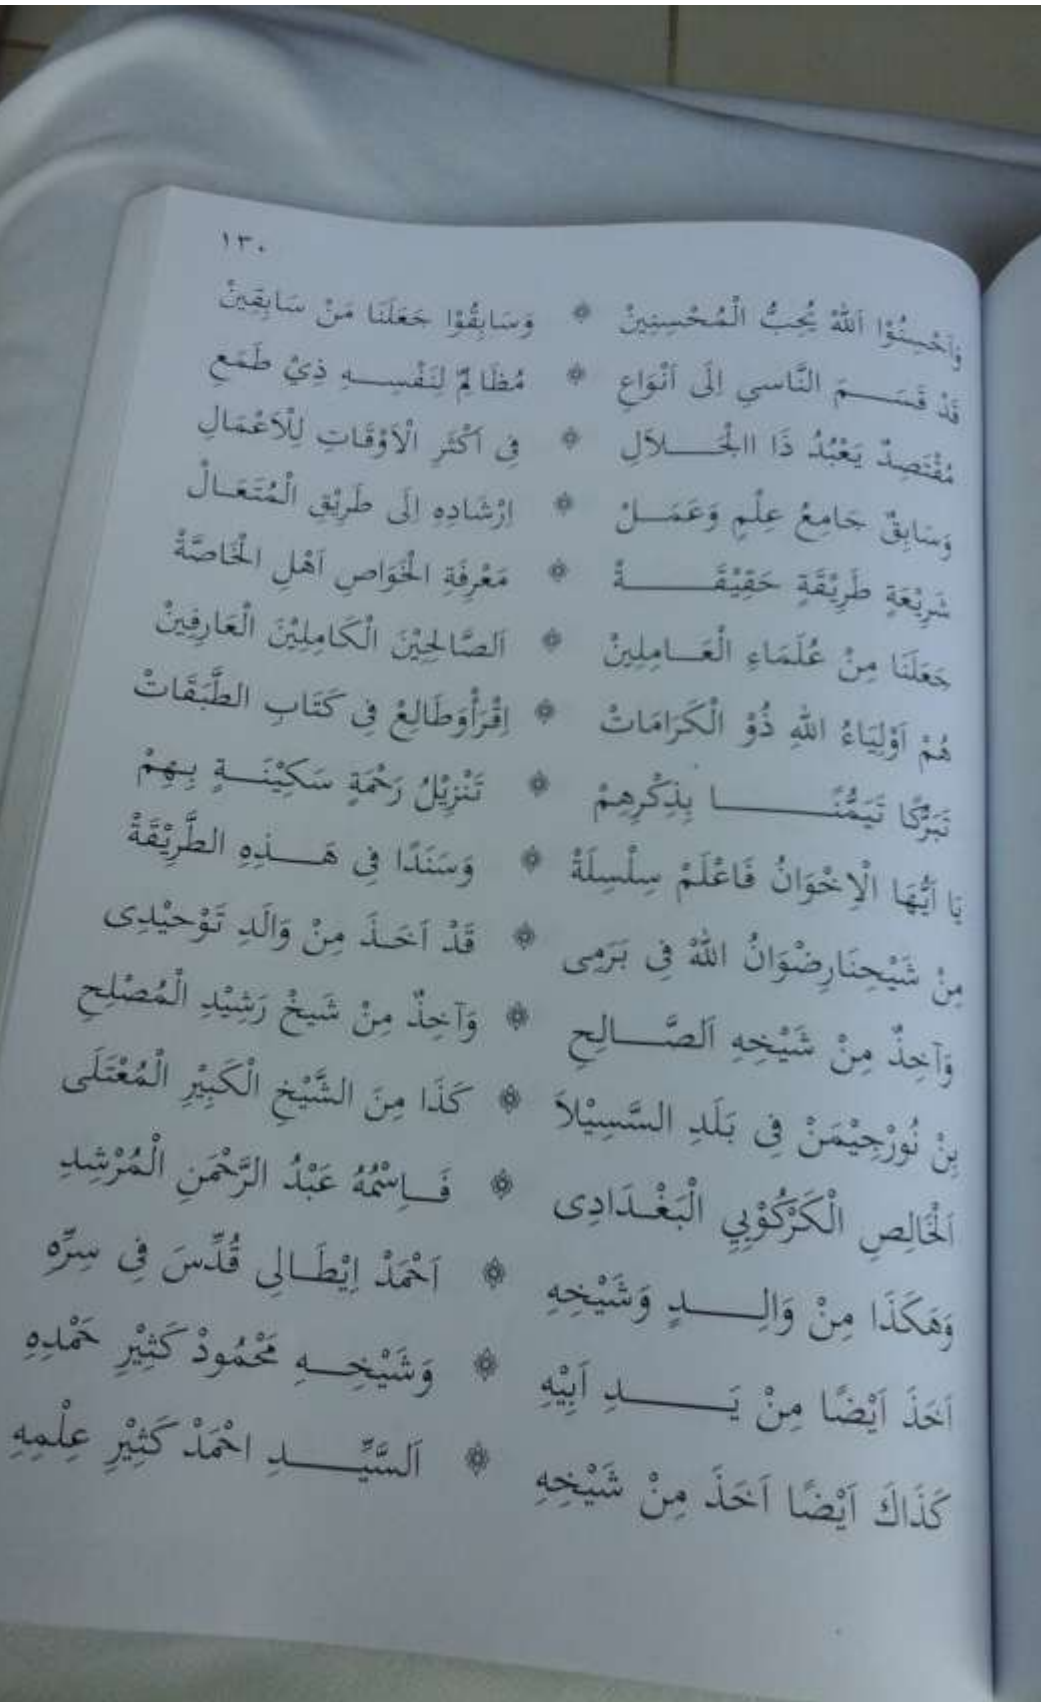 ١٣٠
وَاَحْسِنُوْا اَللّٰهُ يُحِبُّ الْمُحْسِنِيْنْ ۞ وَسَابِقُوْا جَعَلَنَا مَنْ سَابِقِيْنْ
قَدْ قَسَمَ النَّاسِي اِلَى اَنْوَاعِ ۞ مُظَالِمٌ لِنَفْسِهِ ذِيْ طَمَعِ
مُقْتَصِدٌ يَعْبُدُ ذَا االْجَلاَلِ ۞ فِى اَكْثَرِ الْاَوْقَاتِ لِلْاَعْمَالِ
وَسَابِقٌ جَامِعُ عِلْمٍ وَعَمَلْ ۞ اِرْشَادِهِ اِلَى طَرِيْقِ الْمُتَعَالْ
شَرِيْعَةٍ طَرِيْقَةٍ حَقِيْقَةْ ۞ مَعْرِفَةِ الْخَوَاصِ اَهْلِ الْخَاصَّةْ
جَعَلَنَا مِنْ عُلَمَاءِ الْعَامِلِيْنْ ۞ اَلصَّالِحِيْنَ الْكَامِلِيْنَ الْعَارِفِيْنْ
هُمْ اَوْلِيَاءُ اللّٰهِ ذُوْ الْكَرَامَاتْ ۞ اِقْرَأْوَطَالِعْ فِى كَتَابِ الطَّبَقَاتْ
تَبَرُّكًا تَيَمُّنًا بِذِكْرِهِمْ ۞ تَنْزِيْلُ رَحْمَةٍ سَكِيْنَةٍ بِهِمْ
يَا اَيُّهَا الْاِخْوَانُ فَاعْلَمْ سِلْسِلَةْ ۞ وَسَنَدًا فِى هَذِهِ الطَّرِيْقَةْ
مِنْ شَيْحِنَارِضْوَانُ اللّٰهْ فِى بَرَمِى ۞ قَدْ اَخَذَ مِنْ وَالَدِ تَوْحِيْدِى
وَآخِذٌ مِنْ شَيْخِهِ اَلصَّالِحِ ۞ وَآخِذٌ مِنْ شَيخْ رَشِيْدِ الْمُصْلِحِ
بِنْ نُورْجِيْمَنْ فِى بَلَدِ السَّسِيْلاَ ۞ كَذَا مِنَ الشَّيْخِ الْكَبِيْرِ الْمُعْتَلَى
اَلْخَالِصِ الْكَرْكُوْبِيِ الْبَغْدَادِى ۞ فَاِسْمُهُ عَبْدُ الرَّحْمَنِ الْمُرْشِدِ
وَهَكَذَا مِنْ وَالِدٍ وَشَيْخِهِ ۞ اَحْمَدْ اِيْطَالِى قُدِّسَ فِى سِرِّهِ
اَخَذَ اَيْضًا مِنْ يَدِ اَبِيْهِ ۞ وَشَيْخِهِ مَحْمُودْ كَثِيْرِ حَمْدِهِ
كَذَاكَ اَيْضًا اَخَذَ مِنْ شَيْخِهِ ۞ اَلسَّيِّدِ احْمَدْ كَثِيْرِ عِلْمِهِ